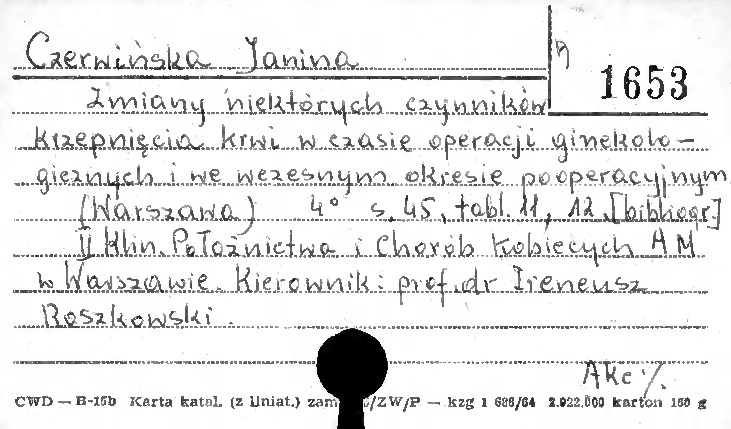 Czerwińska Janina
1653
Zmiany niektórych czynników
krzepnięcia krwi w czasie operacji ginekolo-
gicznych i we wczesnym okresie pooperacyjnym
(Warszawa) 4° s. 45, tabl. 11, 12 [bibliogr.]
II Klin. Położnictwa i Chorób Kobiecych AM
w Warszawie. Kierownik: prof. dr Ireneusz
Roszkowski.
Akc %
CWD — B-15b Karta katal. (z liniat.) zam /ZW/P — kzg 1 686/64 2.922.000 karton 160 g